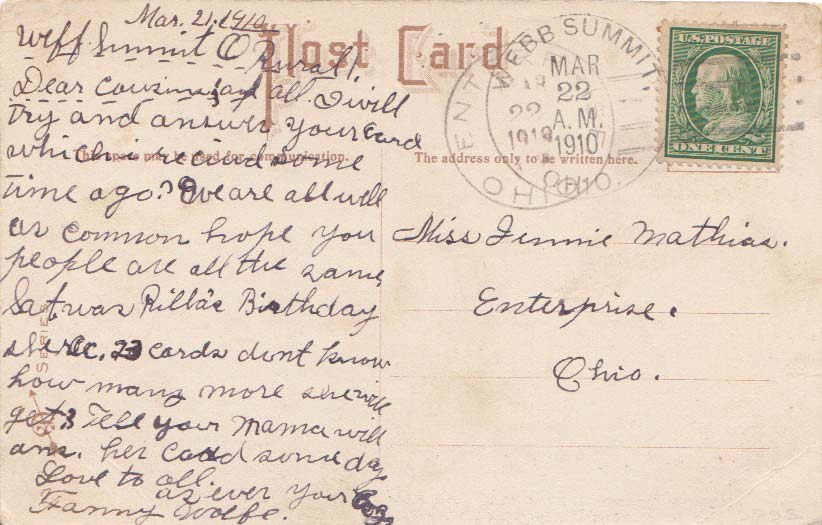 Mar. 21, 1910
Webb Summit O Rural 1.
Dear cousins, and all. I will
try and answer your card
which i recived some
time ago? We are all well
as common hope you
people are all the same
Sat was Rilla's Birthday
she rec. 23 cards dont know
how many more she will
get? Tell your mama will
ans. her card some day
Love to all.
as ever your Coz
Fanny Wolfe.
Post Card
This space may be used for communication.
The address only to be written here.
SERIES
WEBB SUMMIT,
MAR
22
A.M.
1910
OHIO.
ENT
22
1910
OHIO
U.S. POSTAGE
ONE CENT
Miss Jennie Mathias.
Enterprise.
Ohio.